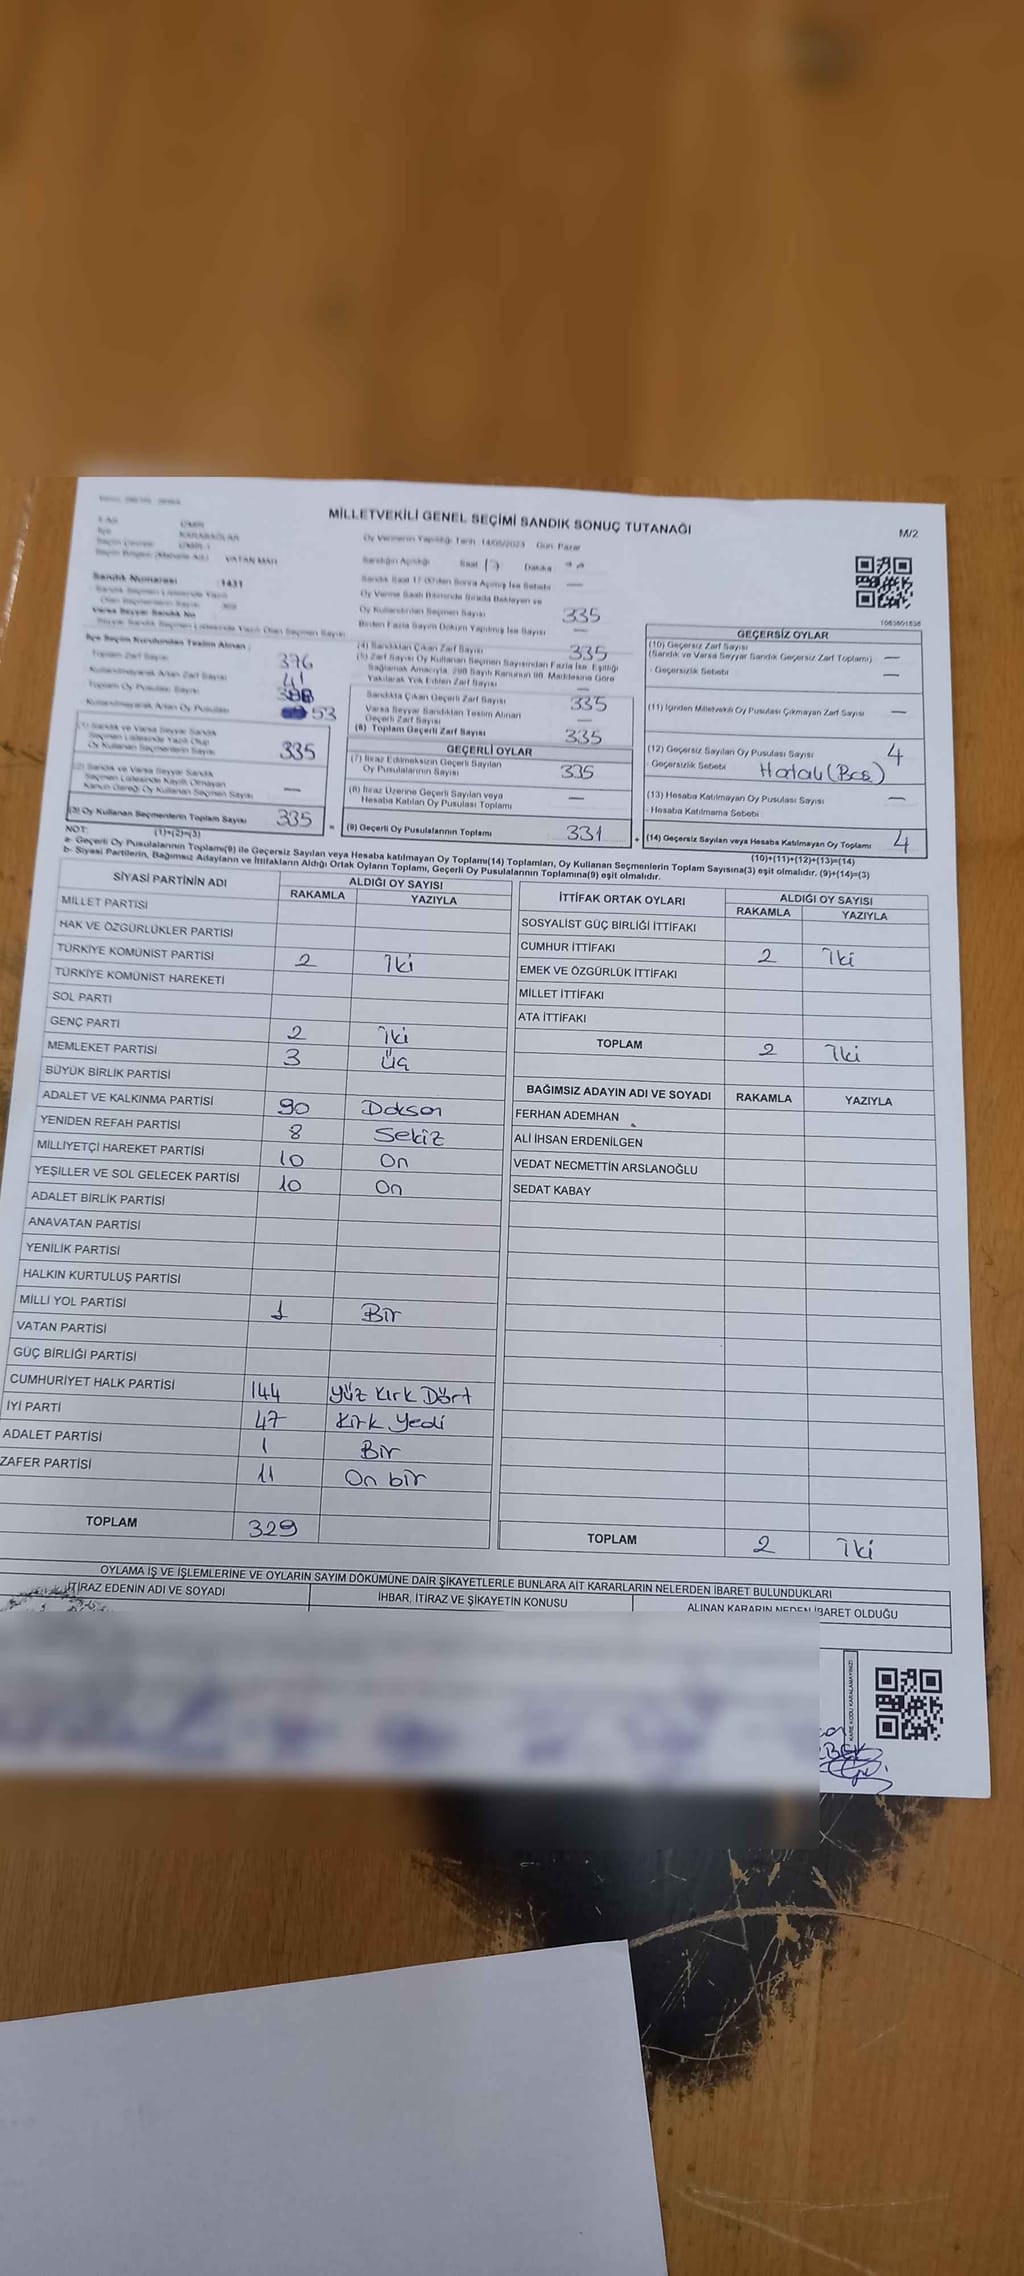 MİLLETVEKİLİ GENEL SEÇİMİ SANDIK SONUÇ TUTANAĞI
M/2
İZMİR
KARABAĞLAR
İZMİR 1
VATAN MAH
Oy Vermenin Yapıldığı Tarih 14/05/2023 Gün Pazar
Sandığın Açıldığı Saat Dakika
Sandık Saat 17:00'den Sonra Açılmış İse Sebebi —
Oy Verme Saati Bitiminde Sırada Bekleyen ve
Oy Kullandırılan Seçmen Sayısı 335
Birden Fazla Sayım Döküm Yapılmış İse Sayısı —
Sandık Numarası 1431
Varsa Seyyar Sandık No
İlçe Seçim Kurulundan Teslim Alınan :
Toplam Zarf Sayısı 376
Kullanılmayarak Artan Zarf Sayısı 41
Toplam Oy Pusulası Sayısı
Kullanılmayarak Artan Oy Pusulası 53
(1) Sandık ve Varsa Seyyar Sandık
Seçmen Listesinde Yazılı Olup
Oy Kullanan Seçmenlerin Sayısı 335
(2) Sandık ve Varsa Seyyar Sandık
Seçmen Listesinde Kayıtlı Olmayan
Kanun Gereği Oy Kullanan Seçmen Sayısı —
(3) Oy Kullanan Seçmenlerin Toplam Sayısı 335
(1)+(2)=(3)
(4) Sandıktan Çıkan Zarf Sayısı 335
(5) Zarf Sayısı Oy Kullanan Seçmen Sayısından Fazla İse, Eşitliği
Sağlamak Amacıyla, 298 Sayılı Kanunun 98. Maddesine Göre
Yakılarak Yok Edilen Zarf Sayısı —
Sandıkta Çıkan Geçerli Zarf Sayısı 335
Varsa Seyyar Sandıktan Teslim Alınan
Geçerli Zarf Sayısı —
(6) Toplam Geçerli Zarf Sayısı 335
GEÇERLİ OYLAR
(7) İtiraz Edilmeksizin Geçerli Sayılan
Oy Pusulalarının Sayısı 335
(8) İtiraz Üzerine Geçerli Sayılan veya
Hesaba Katılan Oy Pusulası Toplamı —
= (9) Geçerli Oy Pusulalarının Toplamı 331 +
1083601535
GEÇERSİZ OYLAR
(10) Geçersiz Zarf Sayısı
(Sandık ve Varsa Seyyar Sandık Geçersiz Zarf Toplamı) —
- Geçersizlik Sebebi —
(11) İçinden Milletvekili Oy Pusulası Çıkmayan Zarf Sayısı —
(12) Geçersiz Sayılan Oy Pusulası Sayısı 4
- Geçersizlik Sebebi Hatalı (Boş)
(13) Hesaba Katılmayan Oy Pusulası Sayısı —
- Hesaba Katılmama Sebebi
(14) Geçersiz Sayılan veya Hesaba Katılmayan Oy Toplamı 4
(10)+(11)+(12)+(13)=(14)
NOT:
a- Geçerli Oy Pusulalarının Toplamı(9) ile Geçersiz Sayılan veya Hesaba katılmayan Oy Toplamı(14) Toplamları, Oy Kullanan Seçmenlerin Toplam Sayısına(3) eşit olmalıdır. (9)+(14)=(3)
b- Siyasi Partilerin, Bağımsız Adayların ve İttifakların Aldığı Ortak Oyların Toplamı, Geçerli Oy Pusulalarının Toplamına(9) eşit olmalıdır.
SİYASİ PARTİNİN ADI ALDIĞI OY SAYISI
RAKAMLA YAZIYLA
MİLLET PARTİSİ
HAK VE ÖZGÜRLÜKLER PARTİSİ
TÜRKİYE KOMÜNİST PARTİSİ 2 İki
TÜRKİYE KOMÜNİST HAREKETİ
SOL PARTİ
GENÇ PARTİ 2 İki
MEMLEKET PARTİSİ 3 Üç
BÜYÜK BİRLİK PARTİSİ
ADALET VE KALKINMA PARTİSİ 90 Doksan
YENİDEN REFAH PARTİSİ 8 Sekiz
MİLLİYETÇİ HAREKET PARTİSİ 10 On
YEŞİLLER VE SOL GELECEK PARTİSİ 10 On
ADALET BİRLİK PARTİSİ
ANAVATAN PARTİSİ
YENİLİK PARTİSİ
HALKIN KURTULUŞ PARTİSİ
MİLLİ YOL PARTİSİ 1 Bir
VATAN PARTİSİ
GÜÇ BİRLİĞİ PARTİSİ
CUMHURİYET HALK PARTİSİ 144 Yüz Kırk Dört
İYİ PARTİ 47 Kırk Yedi
ADALET PARTİSİ 1 Bir
ZAFER PARTİSİ 11 On bir
TOPLAM 329
İTTİFAK ORTAK OYLARI ALDIĞI OY SAYISI
RAKAMLA YAZIYLA
SOSYALİST GÜÇ BİRLİĞİ İTTİFAKI
CUMHUR İTTİFAKI 2 İki
EMEK VE ÖZGÜRLÜK İTTİFAKI
MİLLET İTTİFAKI
ATA İTTİFAKI
TOPLAM 2 İki
BAĞIMSIZ ADAYIN ADI VE SOYADI RAKAMLA YAZIYLA
FERHAN ADEMHAN
ALİ İHSAN ERDENİLGEN
VEDAT NECMETTİN ARSLANOĞLU
SEDAT KABAY
TOPLAM 2 İki
OYLAMA İŞ VE İŞLEMLERİNE VE OYLARIN SAYIM DÖKÜMÜNE DAİR ŞİKAYETLERLE BUNLARA AİT KARARLARIN NELERDEN İBARET BULUNDUKLARI
İTİRAZ EDENİN ADI VE SOYADI İHBAR, İTİRAZ VE ŞİKAYETİN KONUSU ALINAN KARARIN NEDEN İBARET OLDUĞU
KARE KODU KARALAMAYINIZ!